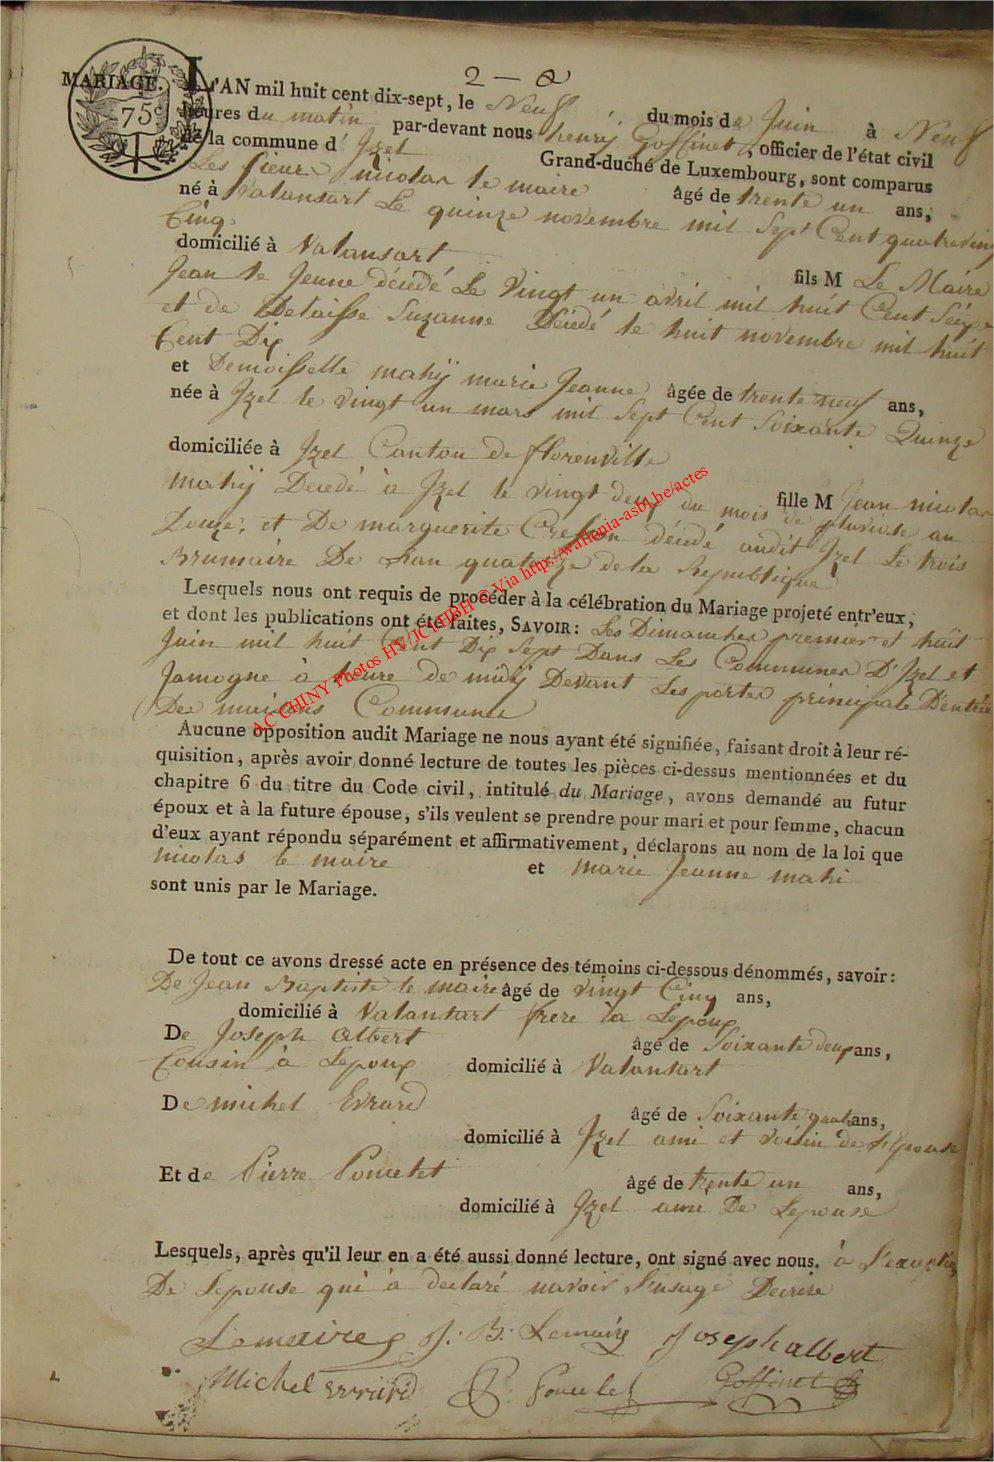 2 — a
MARIAGE.
75c
L'AN mil huit cent dix-sept, le Neuf du mois de Juin à Neuf
heures du matin par-devant nous henrij Goffinet, officier de l'état civil
de la commune d'Jzel Grand-duché de Luxembourg, sont comparus
Les sieur nicolas le maire âgé de trente un ans,
né à Valansart Le quinze novembre mil Sept Cent quatreving
Cinq
domicilié à Valansart fils M Le Maire
Jean le Jeune décédé Le Vingt un avril mil huit Cent Seize
et de Delaisse Suzanne Décédé le huit novembre mil huit
Cent Dix
et Demoisselle mahij marie Jeanne âgée de trente neuf ans,
née à Jzel le vingt un mars mil Sept Cent Soixante Quinze
domiciliée à Jzel Canton de florenville
fille M Jean nicolas
mahij Décédé à Jzel le vingt deux du mois de pluviose an
Douze, et De marguerite décédé audit Jzel Le trois
Brumaire De Lan quatorze de la Republique
Lesquels nous ont requis de procéder à la célébration du Mariage projeté entr'eux,
et dont les publications ont été faites, SAVOIR: Les Dimanches premier et huit
Juin mil huit Cent Dix Sept Dans Les Communes D'Jzel et
Jamogne à heure de midij Devant Les portes principale D'entrée
Des maisons Commune
Aucune opposition audit Mariage ne nous ayant été signifiée, faisant droit à leur ré-
quisition, après avoir donné lecture de toutes les pièces ci-dessus mentionnées et du
chapitre 6 du titre du Code civil, intitulé du Mariage, avons demandé au futur
époux et à la future épouse, s'ils veulent se prendre pour mari et pour femme, chacun
d'eux ayant répondu séparément et affirmativement, déclarons au nom de la loi que
nicolas le maire et marie Jeanne mahi
sont unis par le Mariage.
De tout ce avons dressé acte en présence des témoins ci-dessous dénommés, savoir:
De Jean Baptiste le maire âgé de vingt Cinq ans,
domicilié à Valansart frere a Lepoux
De Joseph Albert âgé de Soixante deux ans,
Cousin à Lepoux domicilié à Valansart
De michel Evrard âgé de Soixante quatr ans,
domicilié à Jzel ami et voisin de l'Epouse
Et de Pierre Poncelet âgé de trente un ans,
domicilié à Jzel ami De Lepouse
Lesquels, après qu'il leur en a été aussi donné lecture, ont signé avec nous. à l'exeption
De Lepouse qui à declaré navoir l'usage Décrire
Lemaire J: B: Lemaire Joseph albert
Michel Evrard P. Poncelet Goffinet
AC CHINY Photos HV/JCH/IBH © Via http://wallonia-asbl.be/actes